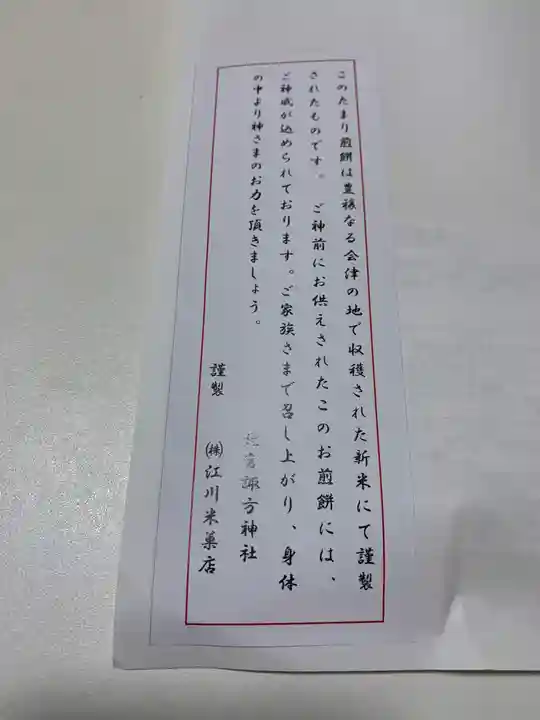 このたまり煎餅は豊穣なる会津の地で収穫された新米にて謹製
されたものです。 ご神前にお供えされたこのお煎餅には、
ご神威が込められております。ご家族さまで召し上がり、身体
の中より神さまのお力を頂きましょう。
宮諏方神社
謹製 ㈱江川米菓店